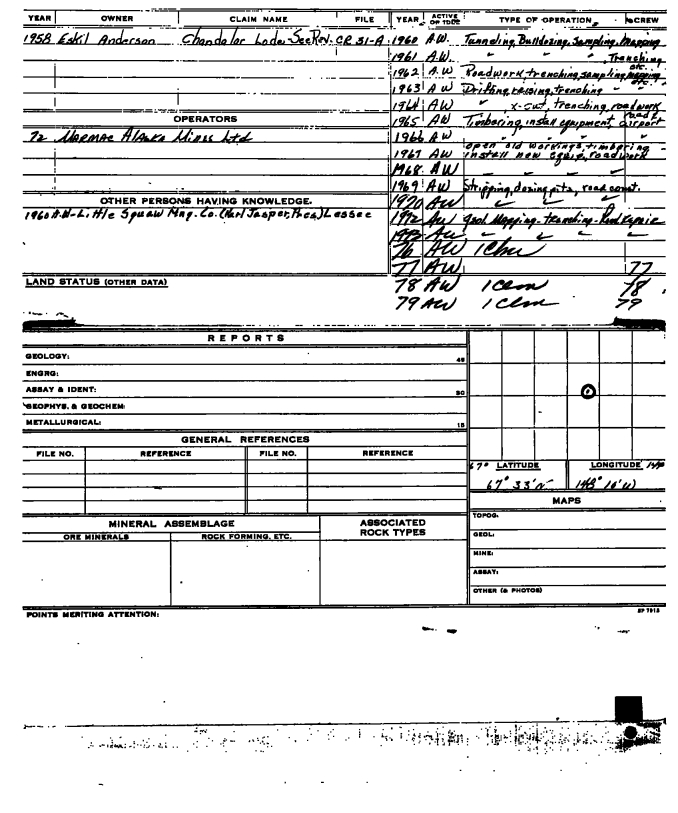 YEAR OWNER CLAIM NAME FILE
1958 Eskil Anderson Chandalar Lode, See Rev. CR 31-A
OPERATORS
72 Noranac Alaska Mines Ltd
OTHER PERSONS HAVING KNOWLEDGE.
1960 A.W-Little Squaw Mng. Co. (Karl Jasper, Pres.) Lessee
LAND STATUS (OTHER DATA)
YEAR ACTIVE OR IDLE TYPE OF OPERATION CREW
1960 A.W. Tunneling, Bulldozing, Sampling, mapping
1961 A.W. " " " Trenching
1962 A.W Roadwork, trenching, sampling, mapping etc.
1963 A W Drifting, raising, trenching " etc.
1964 A W " x-cut, trenching, roadwork
1965 A W Timbering, install equipment, road & airport
1966 A W " " " "
1967 A W open old workings, timbering - install new equip, roadwork
1968 A W " "
1969 A W Stripping, dozing pits, road const.
1970 AW " " "
1972 AW Geol Mapping - trenching - Road Repair
1973 AW " " "
76 AW 1 Clm
77 AW 77
78 AW 1 Clm 78
79 AW 1 Clm 79
REPORTS
GEOLOGY: 45
ENGRG:
ASSAY & IDENT: 30
GEOPHYS. & GEOCHEM:
METALLURGICAL: 15
GENERAL REFERENCES
FILE NO. REFERENCE FILE NO. REFERENCE
67° LATITUDE LONGITUDE 148°
67° 33'N 148° 10'W
MAPS
TOPOG:
GEOL:
MINE:
ASSAY:
OTHER (& PHOTOS)
MINERAL ASSEMBLAGE ASSOCIATED ROCK TYPES
ORE MINERALS ROCK FORMING, ETC.
POINTS MERITING ATTENTION: